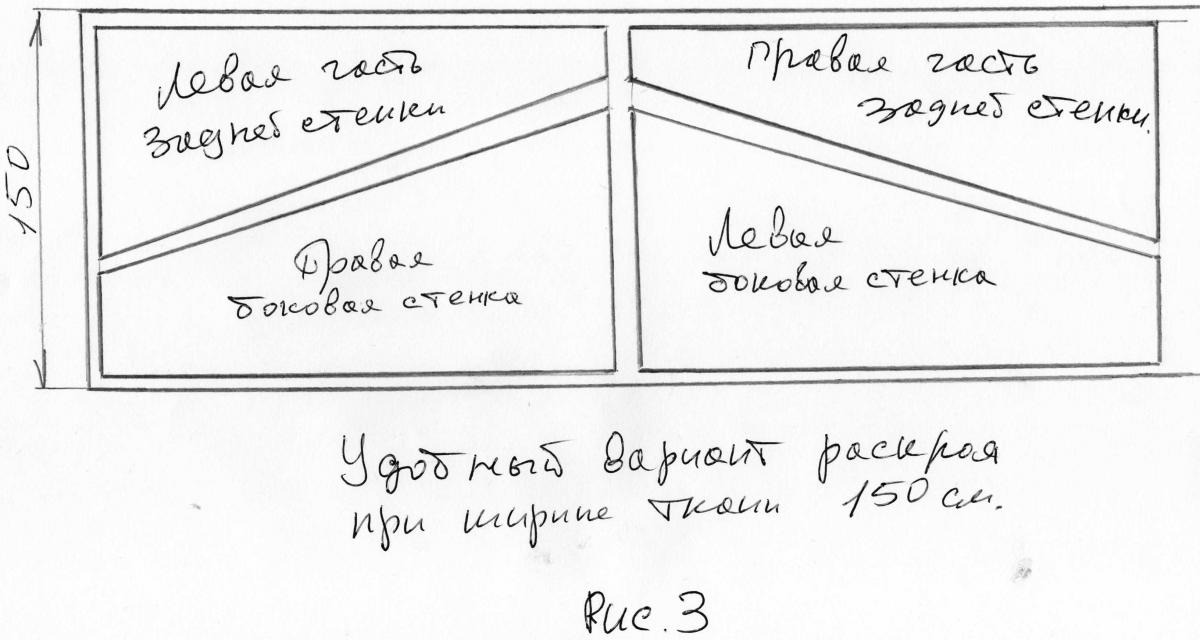 150
Левая часть
задней стенки
Правая часть
задней стенки.
Правая
боковая стенка
Левая
боковая стенка
Удобный вариант раскроя
при ширине ткани 150 см.
Рис. 3